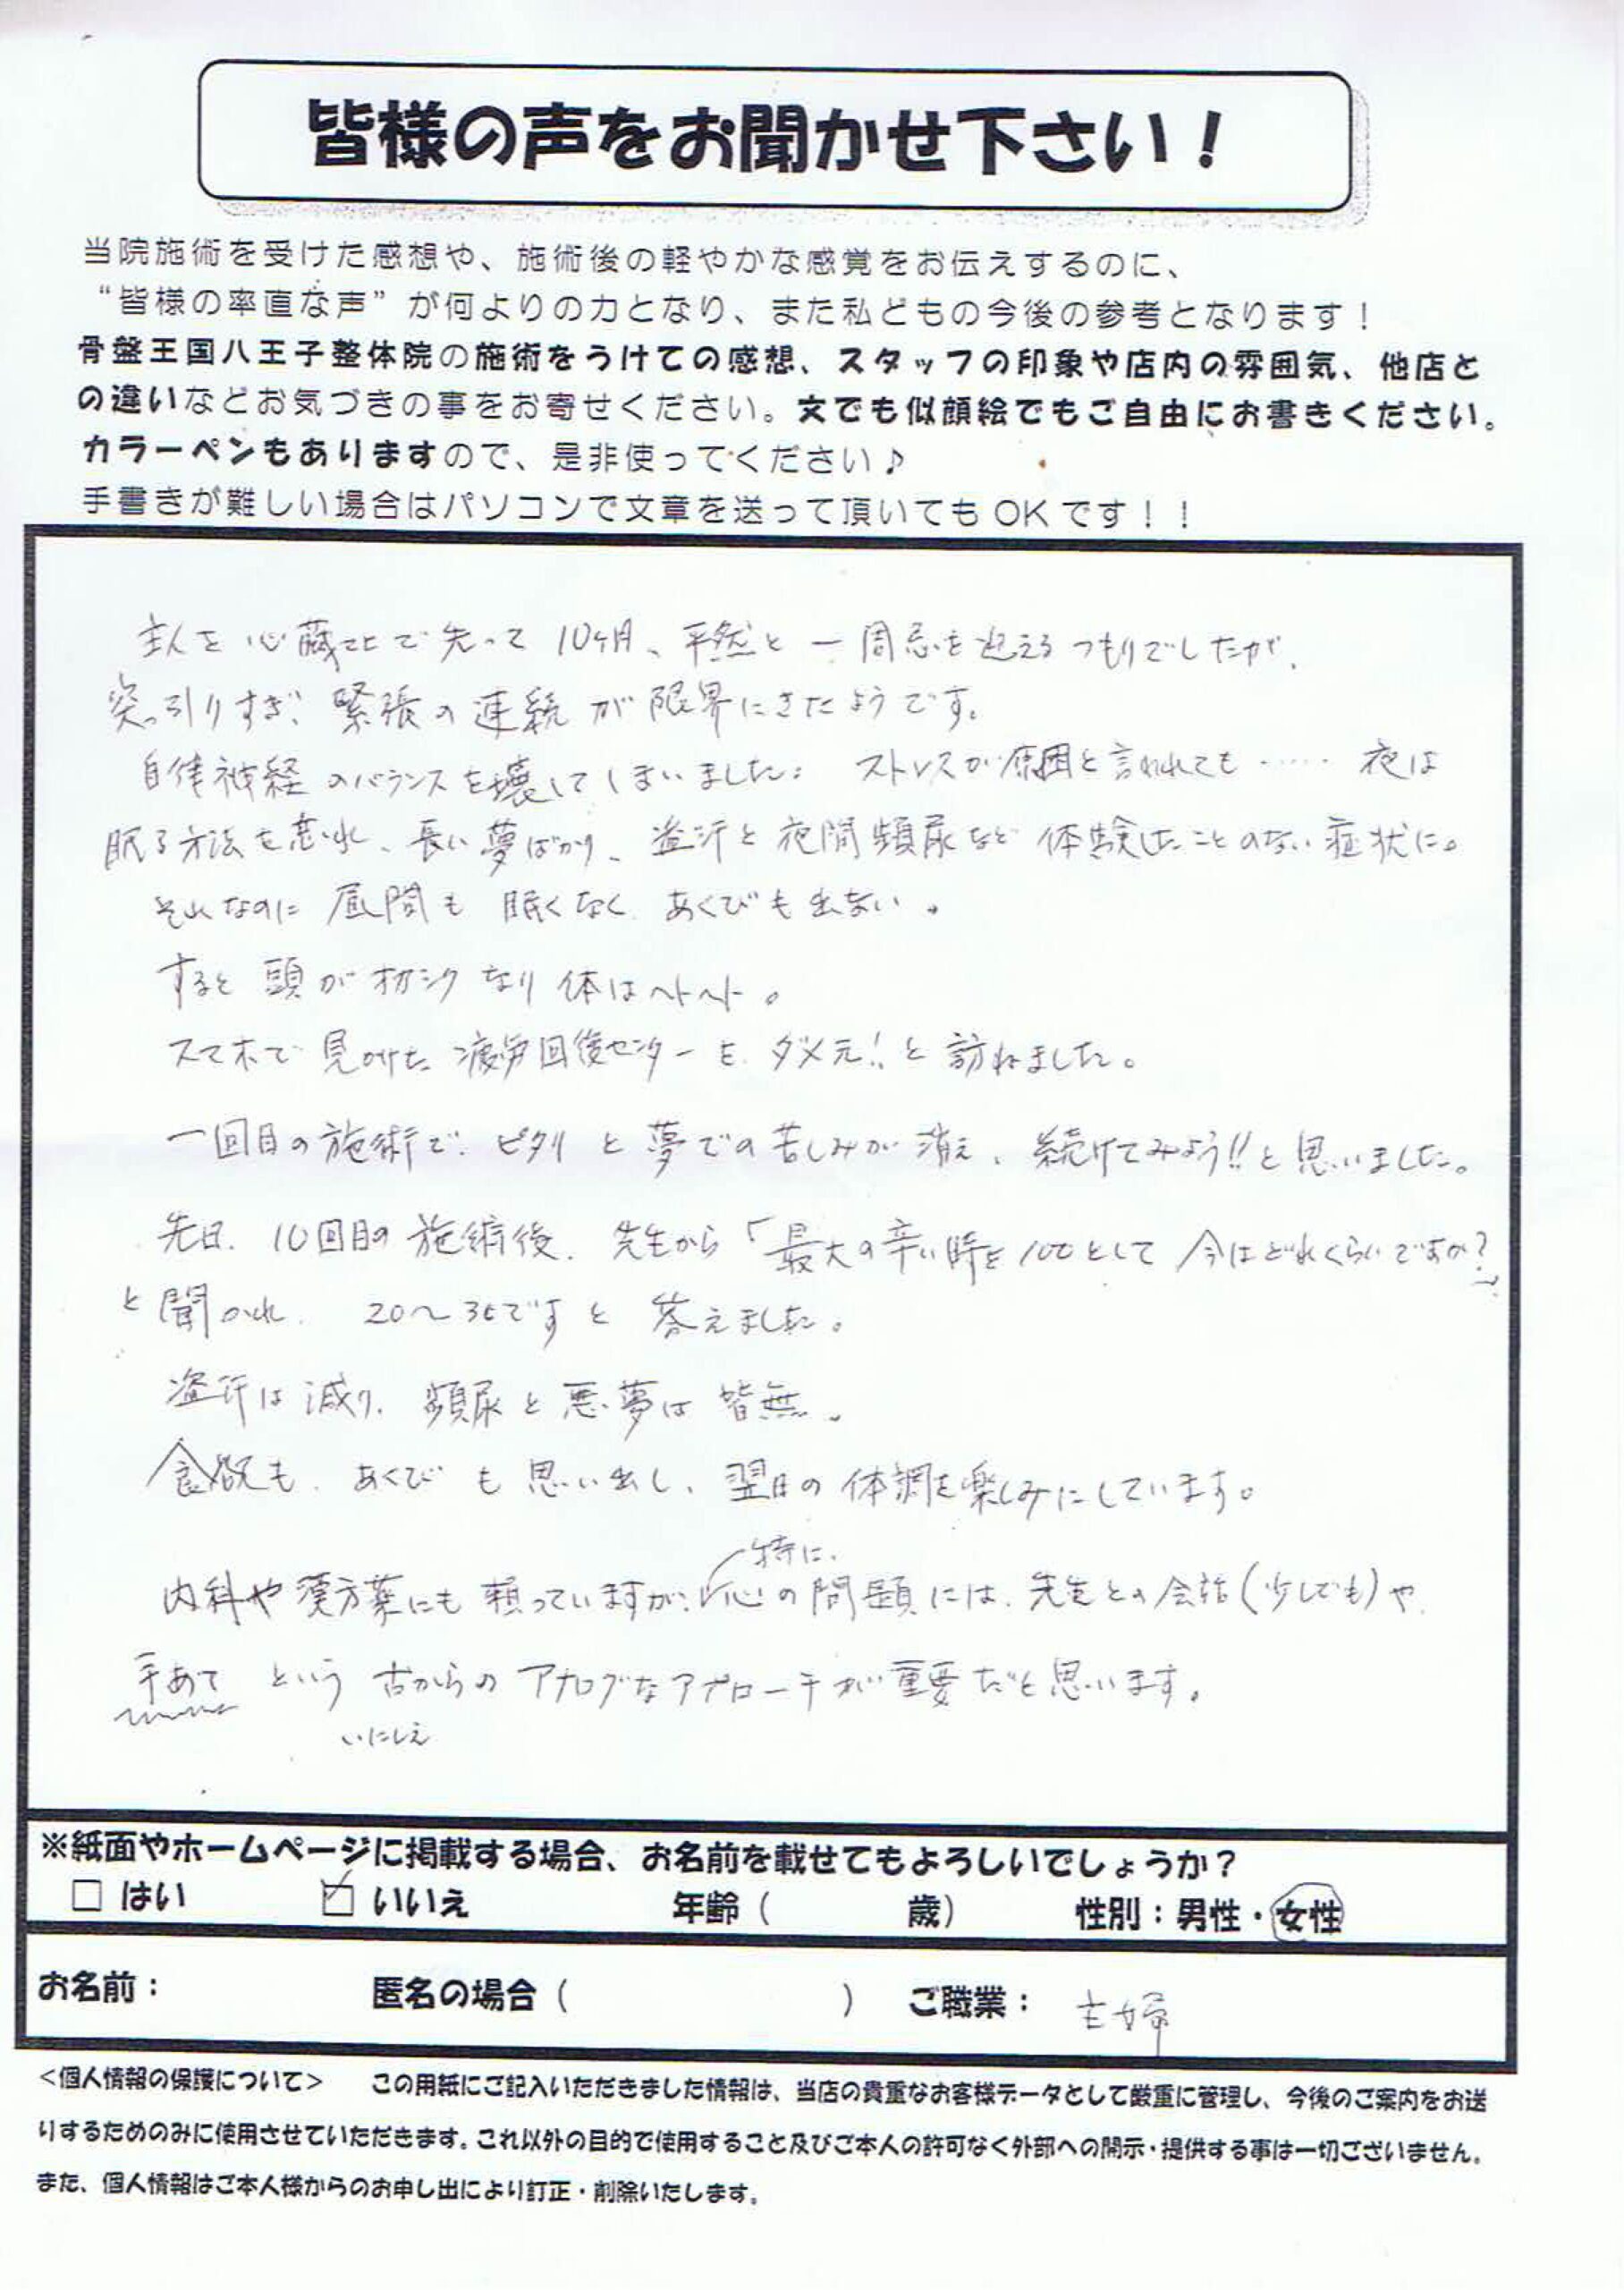 皆様の声をお聞かせ下さい！
当院施術を受けた感想や、施術後の軽やかな感覚をお伝えするのに、
“皆様の率直な声”が何よりの力となり、また私どもの今後の参考となります！
骨盤王国八王子整体院の施術をうけての感想、スタッフの印象や店内の雰囲気、他店と
の違いなどお気づきの事をお寄せください。文でも似顔絵でもご自由にお書きください。
カラーペンもありますので、是非使ってください♪
手書きが難しい場合はパソコンで文章を送って頂いてもOKです！！
主人を心臓死で失って10ヶ月、平然と一周忌を迎えるつもりでしたが、
突っ引りすぎ、緊張の連続が限界にきたようです。
自律神経のバランスを壊してしまいました。ストレスが原因と言われても……夜は
眠る方法を忘れ、長い夢ばかり、盗汗と夜間頻尿など体験したことのない症状に。
それなのに昼間も眠くなく、あくびも出ない。
すると頭がオカシクなり体はヘトヘト。
スマホで見つけた疲労回復センターを、ダメ元!!と訪ねました。
一回目の施術で、ピタリと夢での苦しみが消え、続けてみよう!!と思いました。
先日、10回目の施術後、先生から「最大の辛い時を100として今はどれくらいですか?」
と聞かれ、20～30ですと答えました。
盗汗は減り、頻尿と悪夢は皆無。
食欲も、あくびも思い出し、翌日の体調を楽しみにしています。
特に、
内科や漢方薬にも頼っていますが、心の問題には、先生との会話(少しでも)や、
手あてという古からのアナログなアプローチが重要だと思います。
いにしえ
※紙面やホームページに掲載する場合、お名前を載せてもよろしいでしょうか？
□ はい ☑ いいえ 年齢（ 歳） 性別：男性・女性
お名前： 匿名の場合（ ） ご職業： 主婦
＜個人情報の保護について＞ この用紙にご記入いただきました情報は、当店の貴重なお客様データとして厳重に管理し、今後のご案内をお送
りするためのみに使用させていただきます。これ以外の目的で使用すること及びご本人の許可なく外部への開示・提供する事は一切ございません。
また、個人情報はご本人様からのお申し出により訂正・削除いたします。